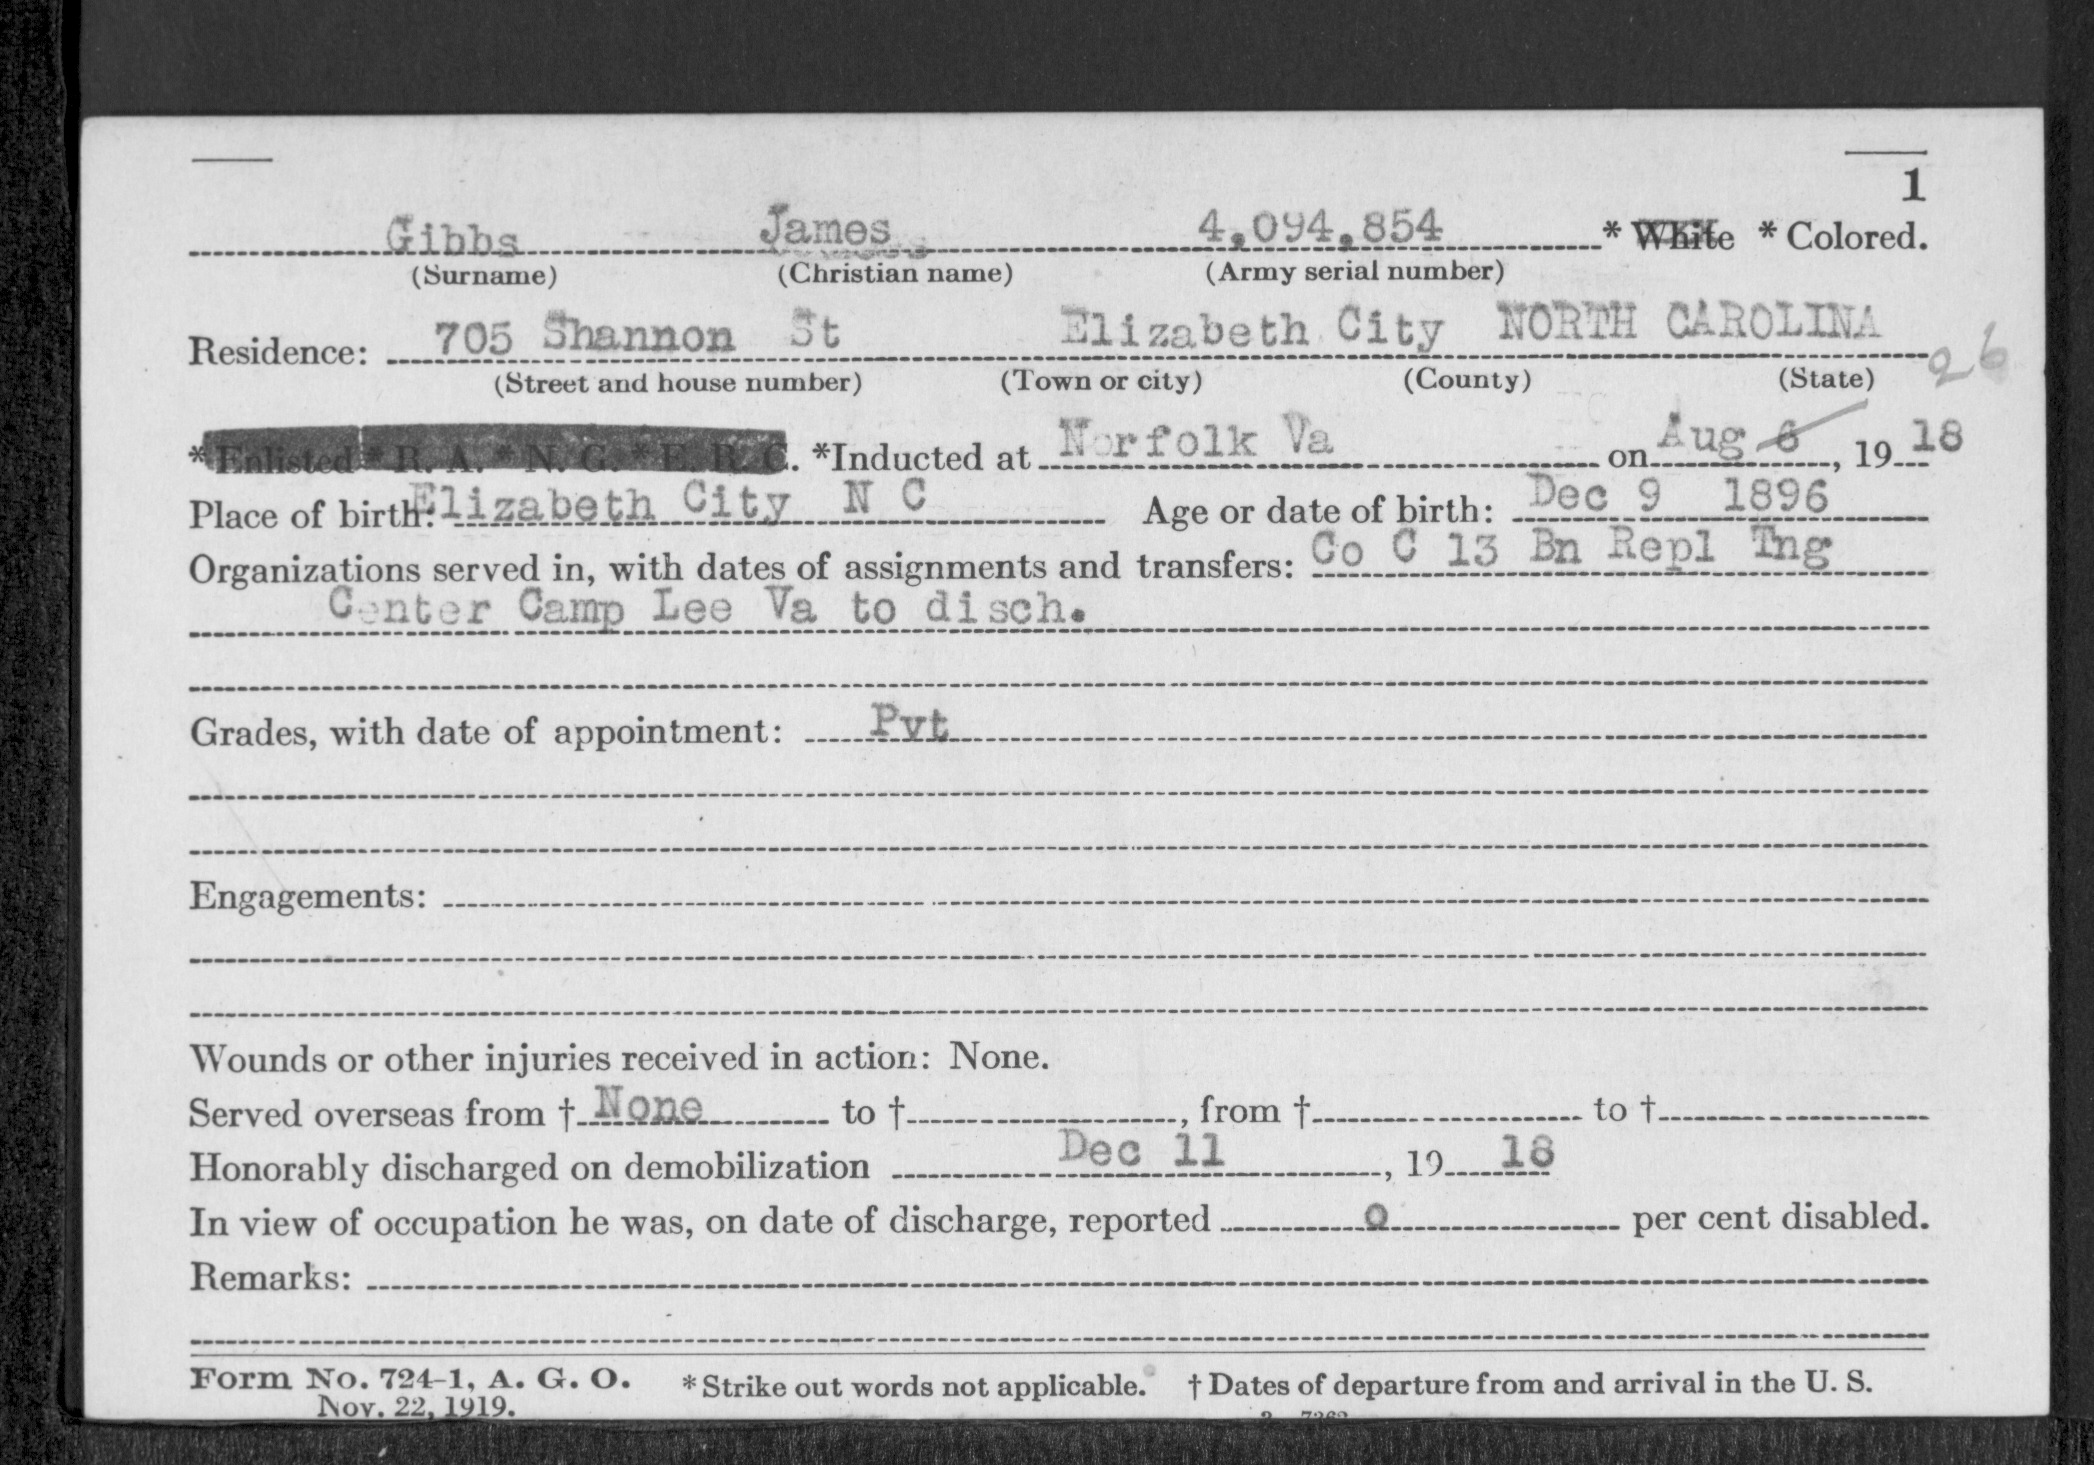 1
Gibbs James 4,094,854 * White * Colored.
(Surname) (Christian name) (Army serial number)
Residence: 705 Shannon St Elizabeth City NORTH CAROLINA
(Street and house number) (Town or city) (County) (State) 26
* Enlisted * R. A. * N. G. * E. R. C. *Inducted at Norfolk Va on Aug 6, 1918
Place of birth: Elizabeth City N C Age or date of birth: Dec 9 1896
Organizations served in, with dates of assignments and transfers: Co C 13 Bn Repl Tng
Center Camp Lee Va to disch.
Grades, with date of appointment: Pvt
Engagements:
Wounds or other injuries received in action: None.
Served overseas from † None to †, from † to †
Honorably discharged on demobilization Dec 11, 1918
In view of occupation he was, on date of discharge, reported 0 per cent disabled.
Remarks:
Form No. 724-1, A. G. O. * Strike out words not applicable. † Dates of departure from and arrival in the U. S.
Nov. 22, 1919.